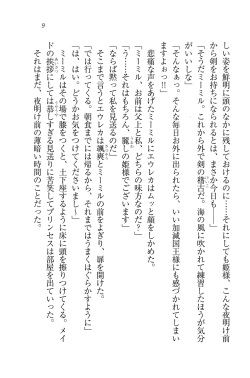 9
しい姿を鮮明に頭のなかに残しておけるのに――それにしても姫様、こんな夜明け前
から剣をお持ちになられるとは、まさか今日も――」
「そうだミーミル。これから外で剣の稽古だ。海の風に吹かれて練習したほうが気分
がいいしな」
「そんなぁっ。そんな毎日お外に出られたら、いい加減国王様にも感づかれてしまい
ますよぉっ!!」
悲痛な声をあげたミーミルにエウレカはムっと顔をしかめた。
「ミーミル、お前は父上と私、どちらの味方なのだ？」
「うっ――それはもちろん、麗しの姫様でございます」
「ならば黙って私を見送るのだ」
そこまで言うとエウレカは颯爽とミーミルの前をよぎり、扉を開けた。
「では行ってくる。朝食までには帰るから、それまではうまくはぐらかすように」
「は、はい。どうかお気をつけてくださいましね」
ミーミルはその場で膝をつくと、土下座するように床に頭を擦りつけてくる。メイ
ドの挨拶にしては恐しすぎる見送りに苦笑してプリンセスは部屋を出ていった。
それはまだ、夜明け前の薄暗い時間のことだった。